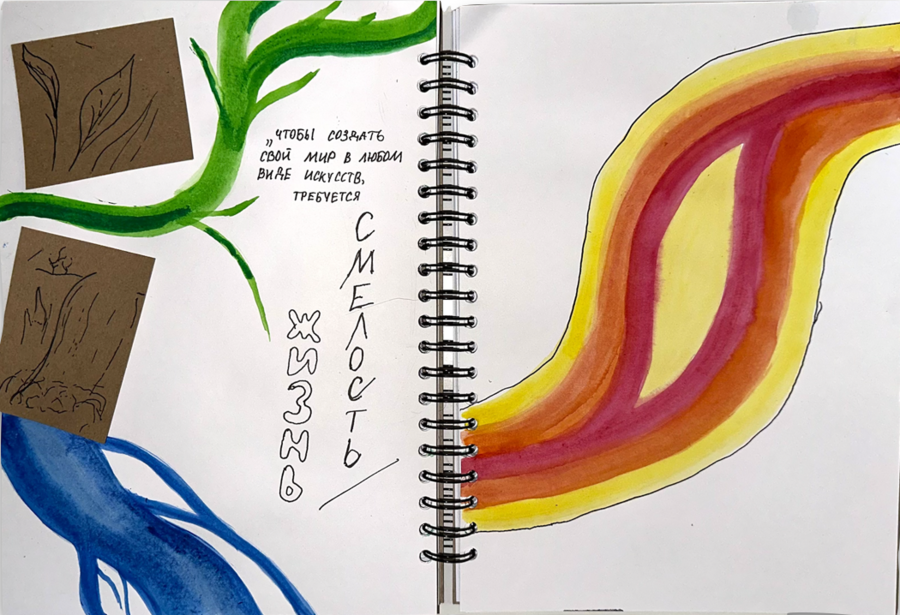 „ЧТОБЫ СОЗДАТЬ
СВОЙ МИР В ЛЮБОМ
ВИДЕ ИСКУССТВ,
ТРЕБУЕТСЯ
СМЕЛОСТЬ
ЖИЗНЬ